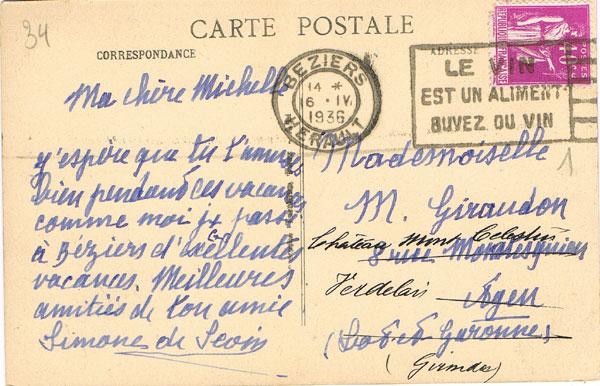 34
CARTE POSTALE
CORRESPONDANCE
ADRESSE
BEZIERS
14 *
6 · IV
1936
HERAULT
LE VIN
EST UN ALIMENT
BUVEZ DU VIN
1
Ma chère Michelle
j'espère que tu t'amuses
bien pendant ces vacances
comme moi je passe
à Béziers d'excellentes
vacances. Meilleures
amitiés de ton amie
Simone de
Mademoiselle
M. Giraudon
Château Mont Célestin
8 rue Montesquieu
Verdelais
Agen
(Lot et Garonne)
(Gironde)